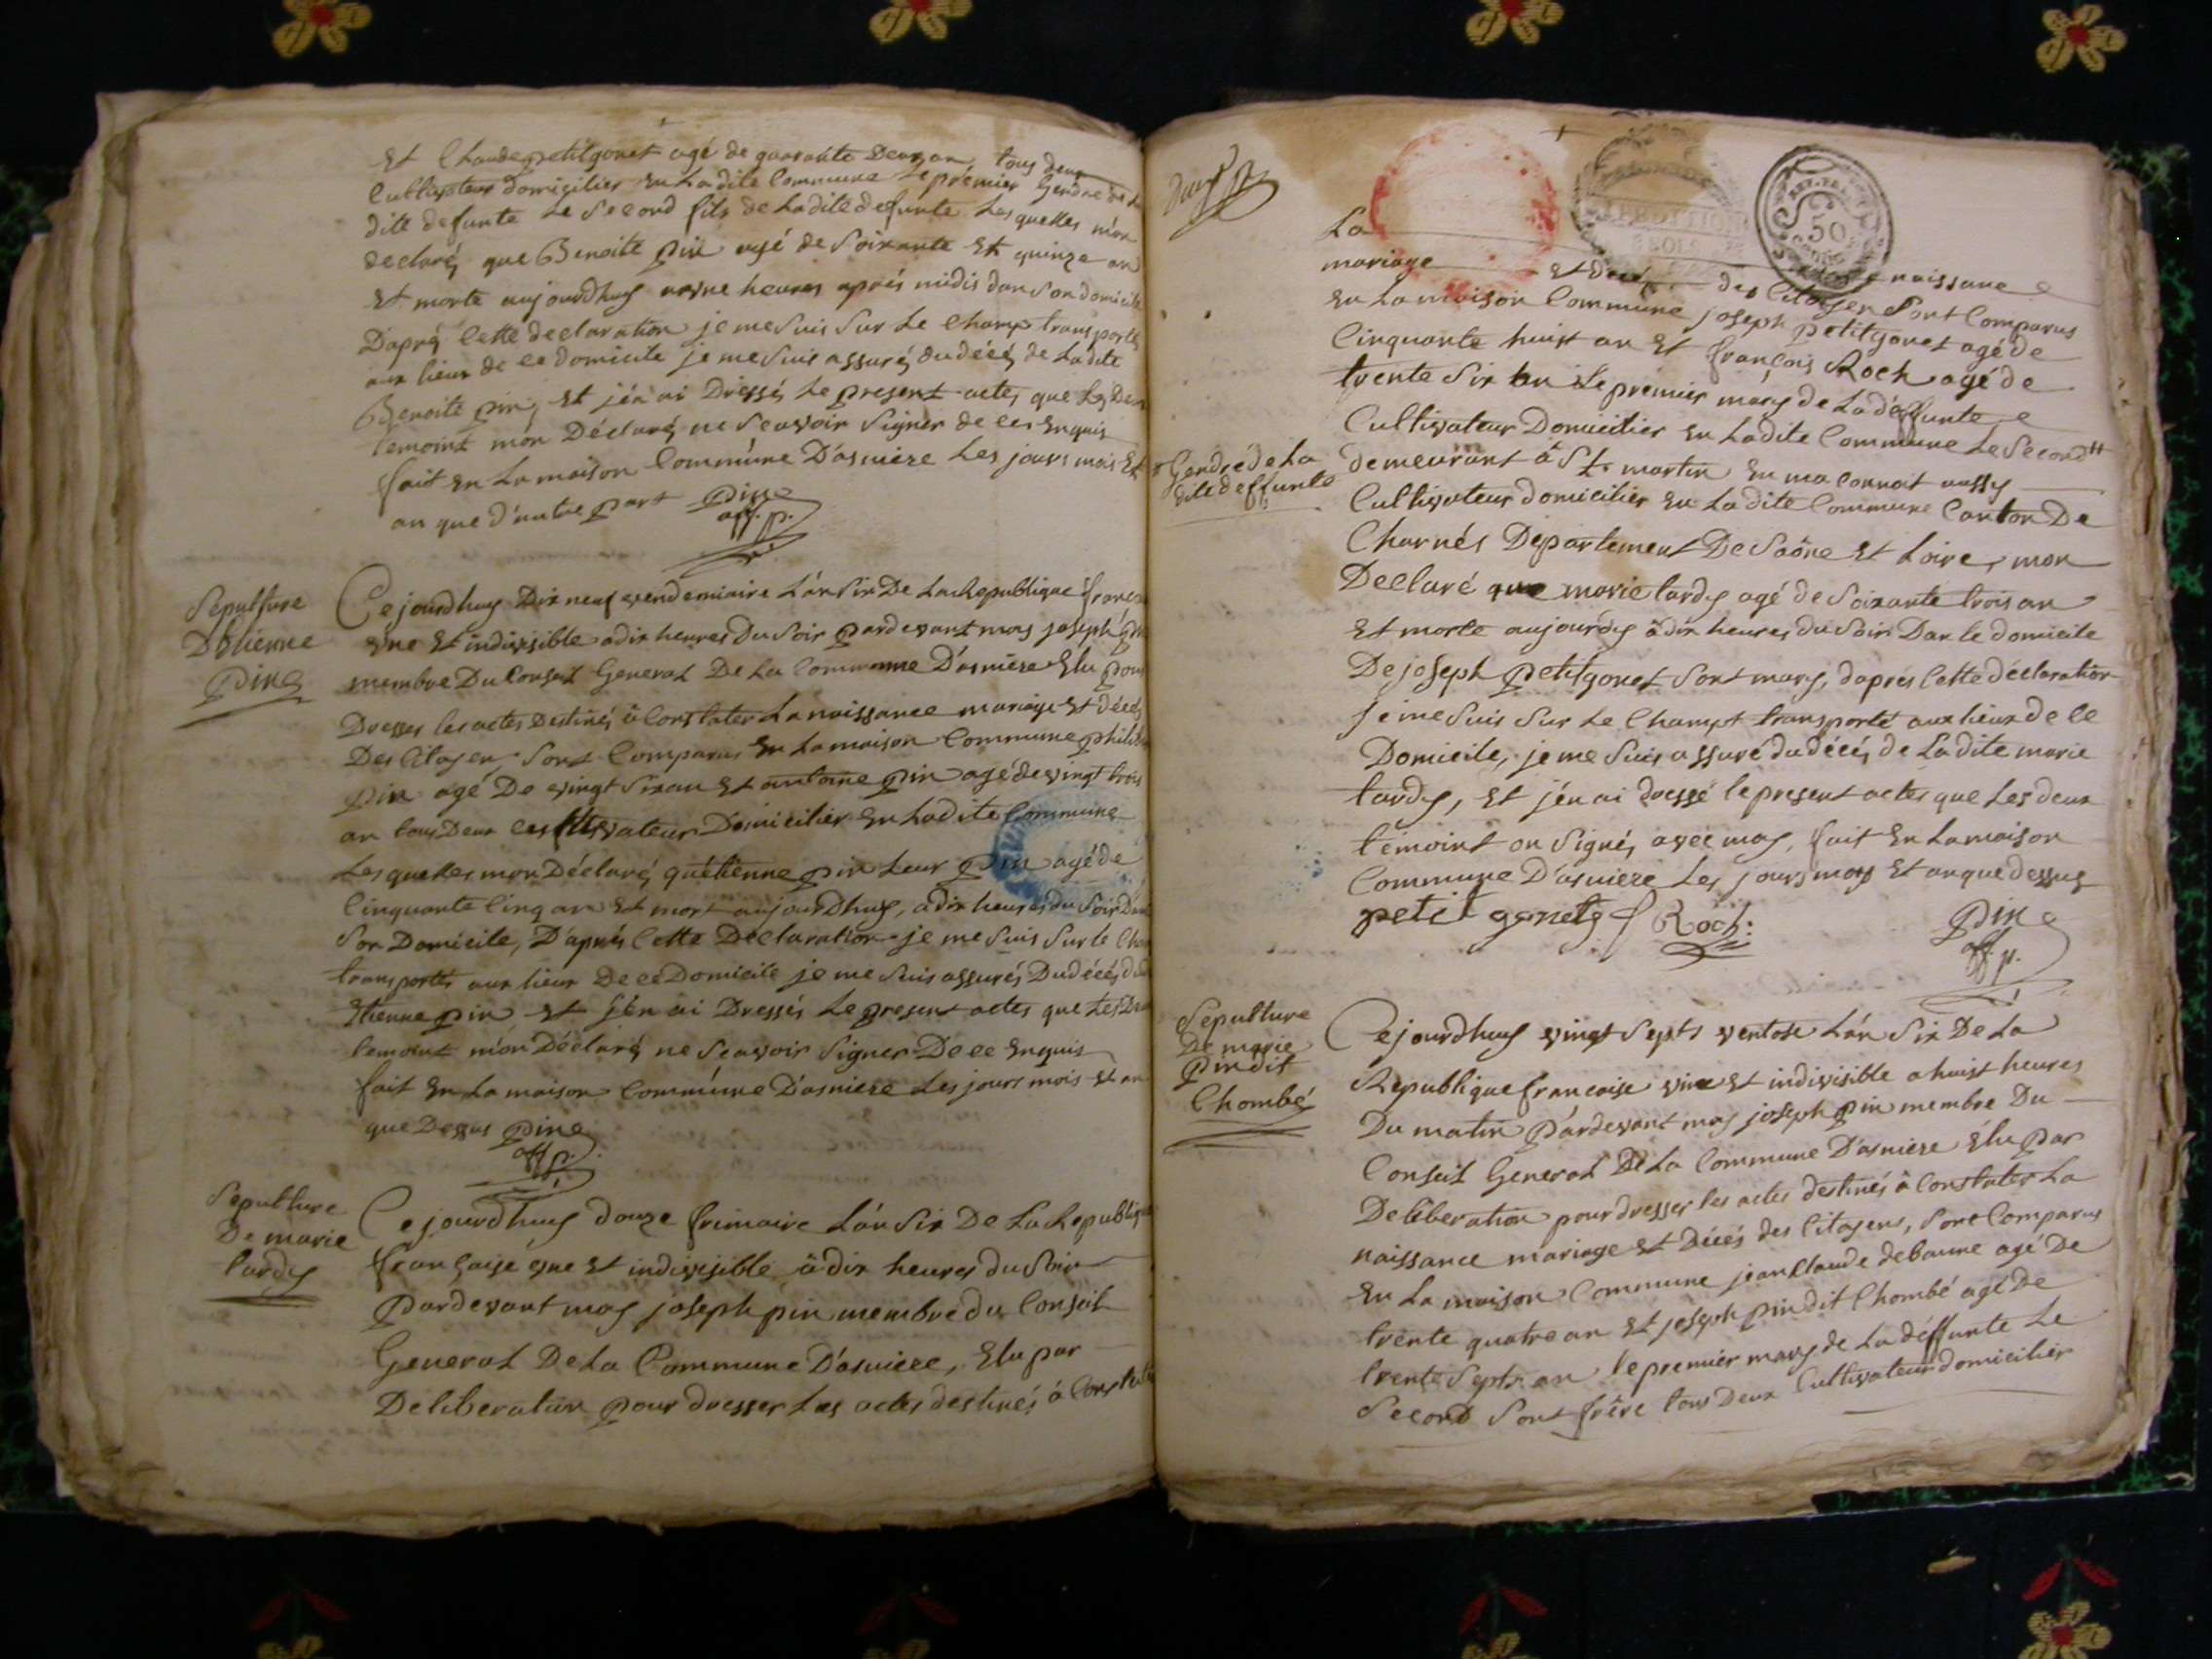 Et Claude petitgonet agé de quarante Deux an, tous deux
Cultivateur domicilier En Ladite Commune Le prémier Gendre de La
dite defunte Le Second fils de Ladite defunte Lesquelles m'on
declaré que Benoite pin agé de Soixante Et quinze an
Et morte aujourdhuy heures aprés midis dan Son domicile
D'apré Cette declaration je me Suis Sur Le Champ transportés
aux lieux de ce domicile je me Suis assuré du décé de Ladite
Benoite pin, Et j'én ai Dressé Le present actes que Les Deux
temoint m'on Déclaré ne Scavoir Signer de ces Enquis
fait En La maison Commune D'asniere Les jours mois Et
an que d'autre part Pin
off. p.
Sepulture
D'Etienne
Pin
Cejourdhuy Dix neuf vendemiaire L'án Six De La Republique france
une Et indivisible a dix heures Du Soir pardevant moy joseph pin
membre Du Conseil General De La Commune D'asniere Elu pour
Dresser les actes Destinés à Constater La naissance mariage Et décés
Des Citoyen, Sont Comparus En La maison Commune phili
pin agé De vingt Six an Et antoine pin agé de vingt trois
an tous Deux Cultivateur Domicilier En Ladite Commune
Lesquelles m'on Déclaré, qu'étienne pin Leur agé de
Cinquante Cinq an Et mort aujourDhuy, a dix heures du Soir Dan
Son Domicile, D'aprés Cette Déclaration je me Suis Sur le Cham
transportés aux lieux De ce Domicile je me Suis assurés Du décés du
Etienne pin Et j'én ai Dressés Le present actes que Les Deux
temoint m'on Déclaré ne Scavoir Signer De ce Enquis
fait En La maison Commune D'asniere Les jours mois Et an
que Dessus Pin
off p.
Sepulture
De marie
tardy
Cejourdhuy douze frimaire L'án Six De La Republique
françaisé une Et indivisible à dix heures du Soir
Pardevant moy joseph pin membre du Conseil
General De La Commune D'asniere, Elu par
Deliberation pour dresser Les actes destinés à Constater
La naissance
mariage Et décé des Citoyen Sont Comparus
En La maison Commune joseph petitgonet agé de
Cinquante huist an Et françois Roch agé de
trente Six an Le premier mary de La déffunte
Cultivateur Domicilier En Ladite Commune Le Second #
# Gendre de La
dite deffunte
demeurant à St. martin En maconnat aussy
Cultivateur domicilier En Ladite Commune Canton De
Charnés Departement De Saône Et Loire, mon
Declaré que marie tardy agé de Soixante trois an
Et morte aujourdy à dix heures du Soir Dan le domicile
De joseph petitgonet Sont mary, daprés Cette déclaration
je me Suis Sur Le Champt transporté aux lieux de ce
Domicile, je me Suis assuré du décés de Ladite marie
tardy, Et j'én ai dressé le present actes que Les deux
témoint on Signé, avec moy, fait En La maison
Commune D'asniere Les jours moy Et an que dessus
petit gonet f Roch.
Pin
off. p.
Sepulture
De marie
Pin dit
Chombé
Cejourdhuy vingt Septs ventose L'án Six De La
Republique francaise une Et indivisible a huist heures
Du matin Pardevant moy joseph pin membre Du
Conseil General De La Commune D'asniere Elu par
Deliberation pour dresser les actes destinés à Constater La
naissance mariage Et Décés des Citoyens, Sont Comparus
En La maison Commune jean Claude debaune agé De
trente quatre an Et joseph pin dit Chombé agé De
trente Septs an le premier mary de La déffunte Le
Second Sont frére tous Deux Cultivateur domicilier
50